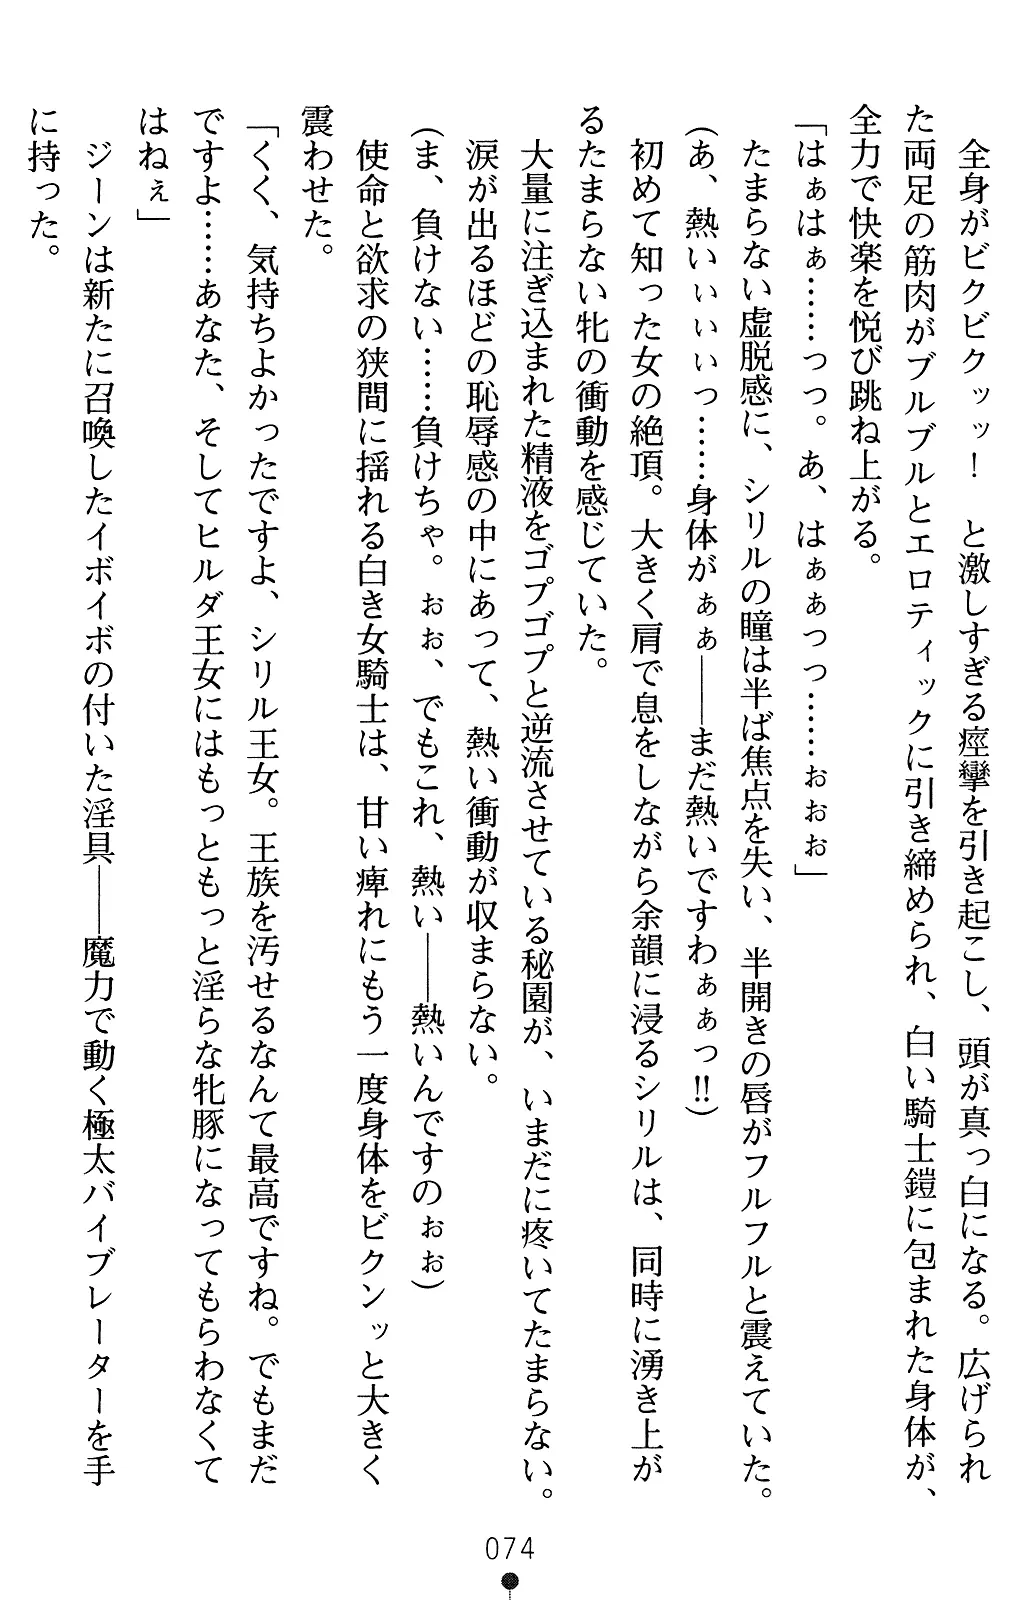 全身がビクビクッッ！　と激しすぎる痙攣を引き起こし、頭が真っ白になる。広げられ
た両足の筋肉がブルブルとエロティックに引き締められ、白い騎士鎧に包まれた身体が、
全力で快楽を悦び跳ね上がる。
「はぁはぁ……っっ。あ、はぁぁっっ……ぉぉぉ」
たまらない虚脱感に、シリルの瞳は半ば焦点を失い、半開きの唇がフルフルと震えていた。
(あ、熱いぃぃぃっ……身体がぁぁ――まだ熱いですわぁぁっ!!)
初めて知った女の絶頂。大きく肩で息をしながら余韻に浸るシリルは、同時に湧き上が
るたまらない牝の衝動を感じていた。
大量に注ぎ込まれた精液をゴプゴプと逆流させている秘園が、いまだに疼いてたまらない。
涙が出るほどの恥辱感の中にあって、熱い衝動が収まらない。
(ま、負けない……負けちゃ。ぉぉ、でもこれ、熱い――熱いんですのぉぉ)
使命と欲求の狭間に揺れる白き女騎士は、甘い痺れにもう一度身体をビクンッと大きく
震わせた。
「くく、気持ちよかったですよ、シリル王女。王族を汚せるなんて最高ですね。でもまだ
ですよ……あなた、そしてヒルダ王女にはもっともっと淫らな牝豚になってもらわなくて
はねぇ」
ジーンは新たに召喚したイボイボの付いた淫具――魔力で動く極太バイブレーターを手
に持った。
074